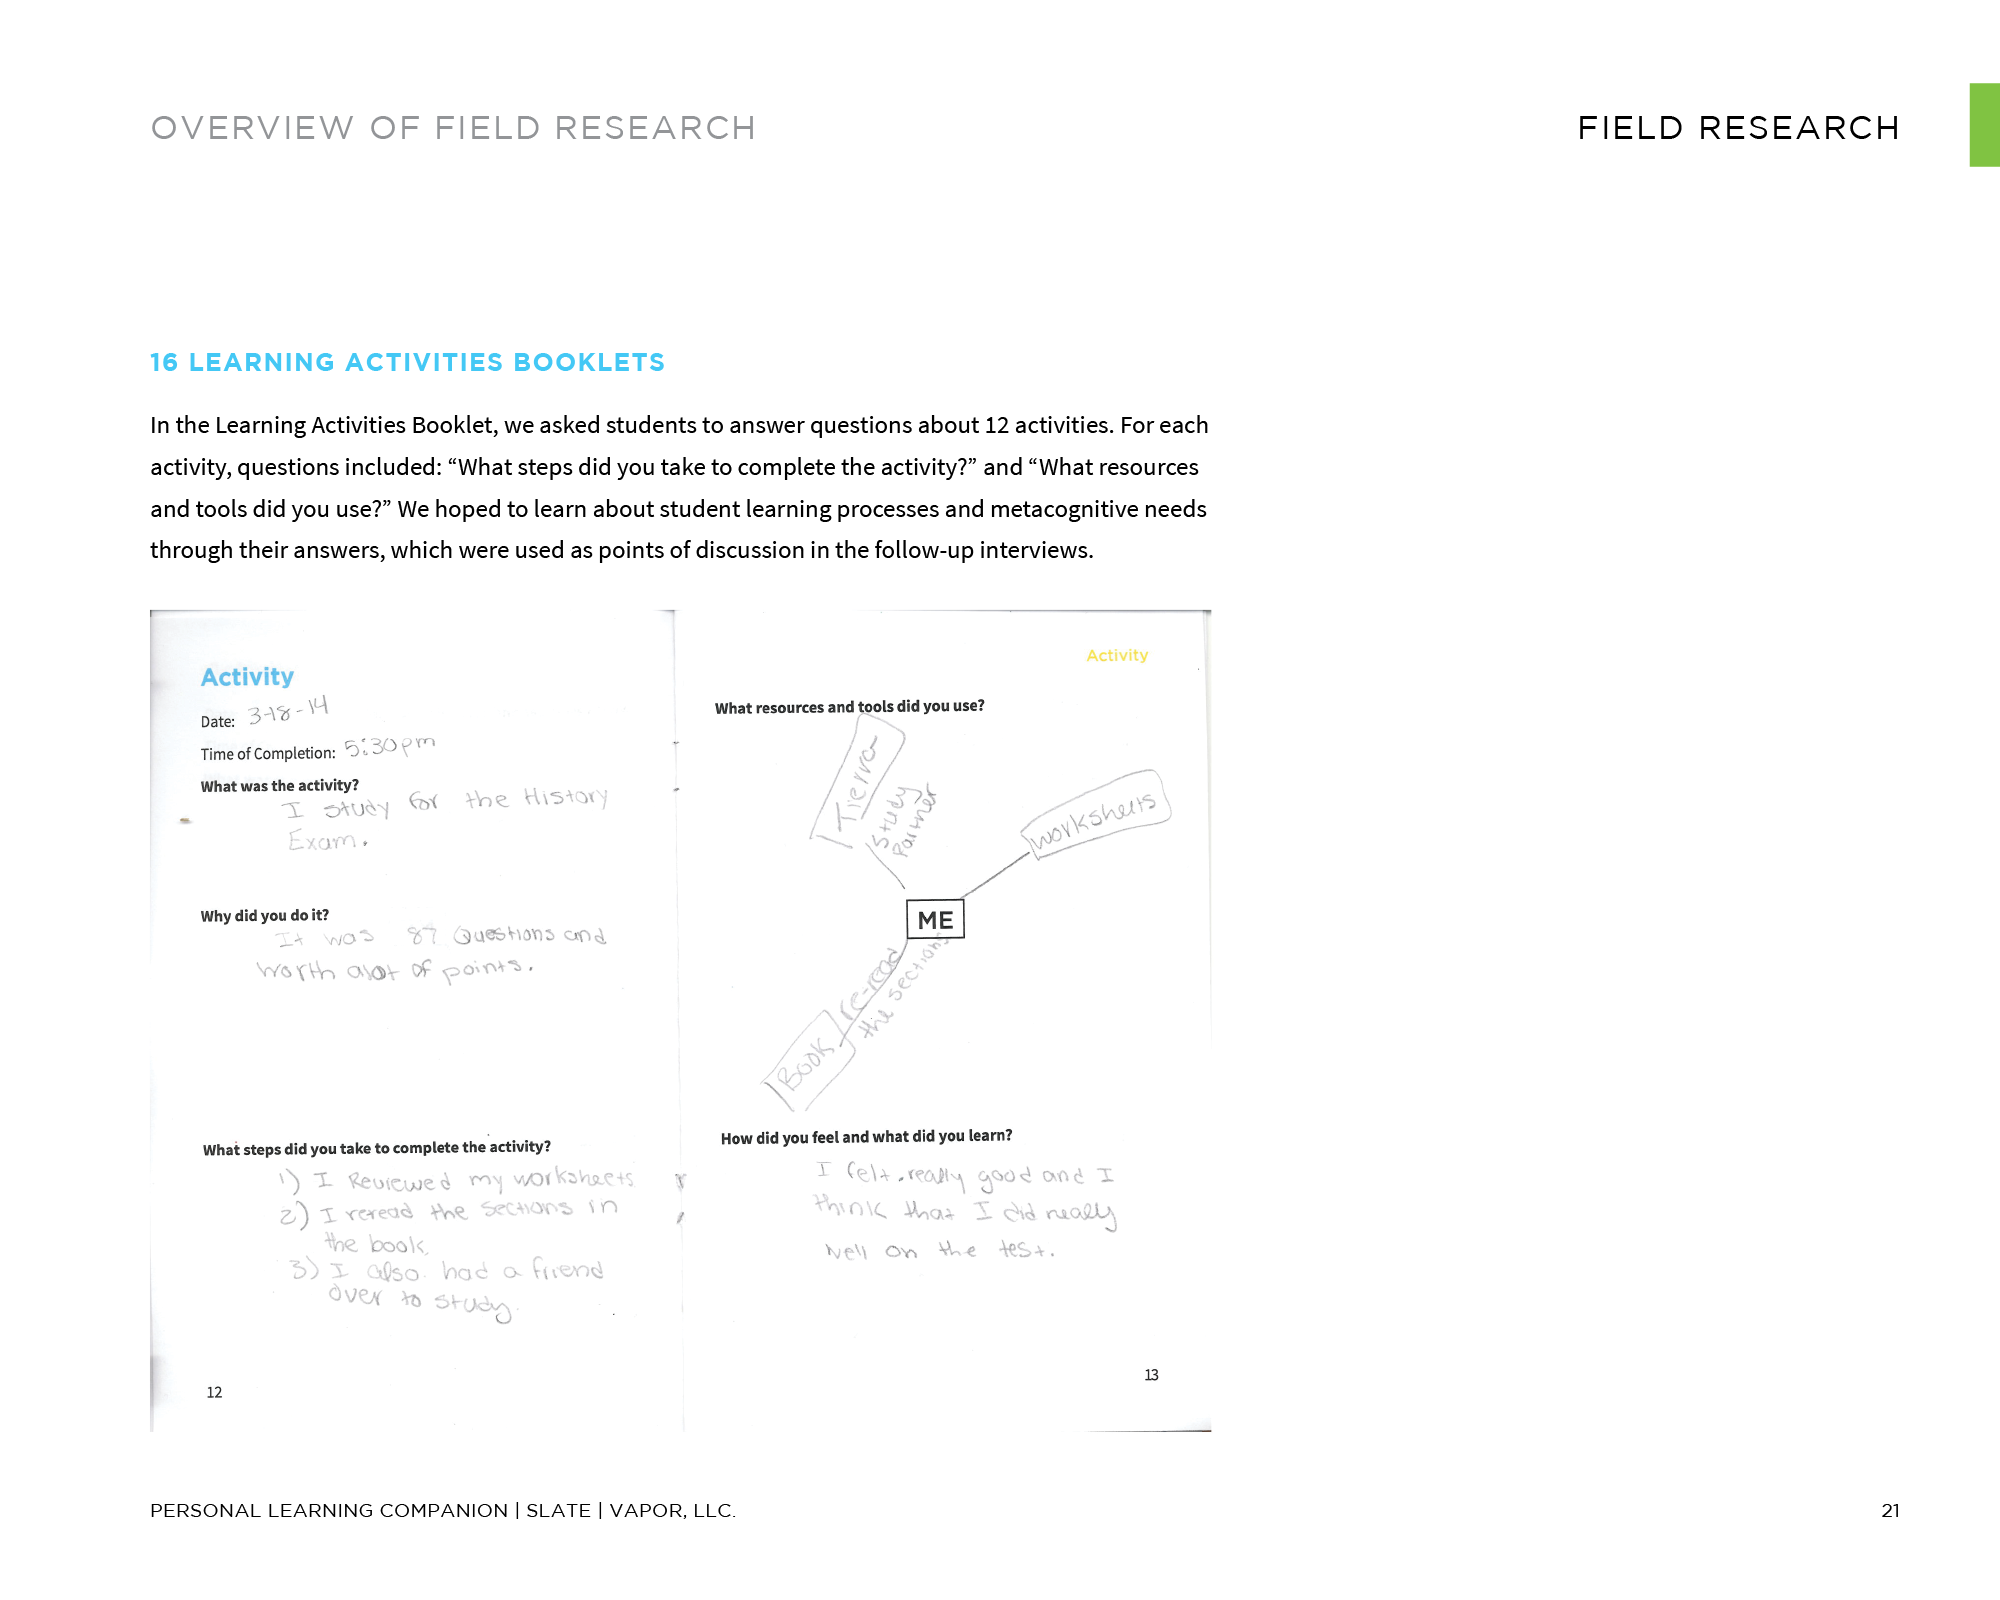 OVERVIEW OF FIELD RESEARCH
FIELD RESEARCH
16 LEARNING ACTIVITIES BOOKLETS
In the Learning Activities Booklet, we asked students to answer questions about 12 activities. For each
activity, questions included: “What steps did you take to complete the activity?” and “What resources
and tools did you use?” We hoped to learn about student learning processes and metacognitive needs
through their answers, which were used as points of discussion in the follow-up interviews.
Activity
Date: 3-18-14
Time of Completion: 5:30pm
What was the activity?
I study for the History
Exam.
Why did you do it?
It was 87 Questions and
worth alot of points.
What steps did you take to complete the activity?
1) I Reviewed my worksheets
2) I reread the sections in
the book.
3) I also had a friend
over to study.
12
Activity
What resources and tools did you use?
Tierra
Study
Partner
worksheets
ME
re-read
the sections
Book
How did you feel and what did you learn?
I felt really good and I
think that I did really
well on the test.
13
PERSONAL LEARNING COMPANION | SLATE | VAPOR, LLC.
21